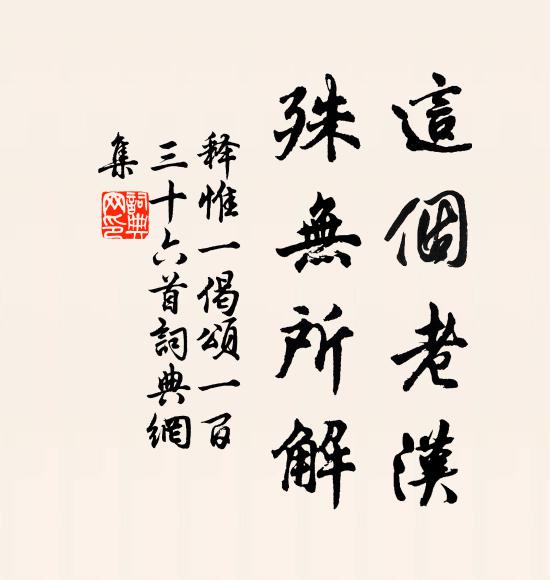 這個老漢
殊無所解
释惟一偈頌一百
三十六首詞典網
集
詞典
网印